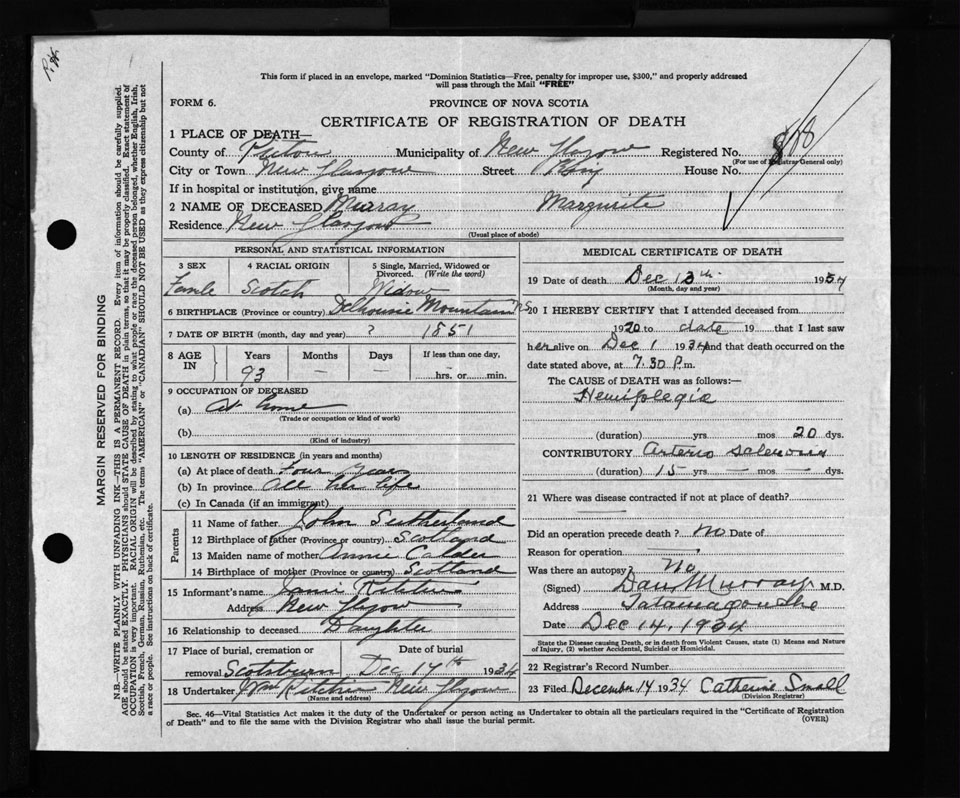 This form if placed in an envelope, marked "Dominion Statistics—Free, penalty for improper use, $300," and properly addressed
will pass through the Mail "FREE"
FORM 6.
PROVINCE OF NOVA SCOTIA
CERTIFICATE OF REGISTRATION OF DEATH
1 PLACE OF DEATH—
County of Pictou Municipality of New Glasgow Registered No.
(For use of Registrar General only)
City or Town New Glasgow Street House No.
If in hospital or institution, give name
2 NAME OF DECEASED Murray Marguerite
Residence New Glasgow
(Usual place of abode)
PERSONAL AND STATISTICAL INFORMATION
3 SEX 4 RACIAL ORIGIN 5 Single, Married, Widowed or
Divorced. (Write the word)
Female Scotch Widow
6 BIRTHPLACE (Province or country) Dalhousie Mountain N.S.
7 DATE OF BIRTH (month, day and year) ? 1851
8 AGE IN Years Months Days If less than one day,
93 — — hrs. or min.
9 OCCUPATION OF DECEASED
(a) At home
(Trade or occupation or kind of work)
(b)
(Kind of industry)
10 LENGTH OF RESIDENCE (in years and months)
(a) At place of death four years
(b) In province all her life
(c) In Canada (if an immigrant)
Parents
11 Name of father John Sutherland
12 Birthplace of father (Province or country) Scotland
13 Maiden name of mother Annie Calder
14 Birthplace of mother (Province or country) Scotland
15 Informant's name Ritchie
Address New Glasgow
16 Relationship to deceased Daughter
17 Place of burial, cremation or Date of burial
removal Scotsburn Dec 17th 1934
18 Undertaker Wm Ritchie New Glasgow
(Name and address)
MEDICAL CERTIFICATE OF DEATH
19 Date of death Dec 13th 1934
(Month, day and year)
20 I HEREBY CERTIFY that I attended deceased from
1920 to date 19 that I last saw
her alive on Dec 1 1934 and that death occurred on the
date stated above, at 7.30 P. m.
The CAUSE of DEATH was as follows:—
Hemiplegia
(duration) yrs. mos 20 dys.
CONTRIBUTORY Arterio sclerosis
(duration) 15 yrs. — mos. — dys.
21 Where was disease contracted if not at place of death?
Did an operation precede death? No Date of
Reason for operation
Was there an autopsy? No
(Signed) Dan Murray M.D.
Address Tatamagouche
Date Dec 14, 1934
State the Disease causing Death, or in death from Violent Causes, state (1) Means and Nature
of Injury, (2) whether Accidental, Suicidal or Homicidal.
22 Registrar's Record Number
23 Filed December 14 1934 Catherine Small
(Division Registrar)
Sec. 46—Vital Statistics Act makes it the duty of the Undertaker or person acting as Undertaker to obtain all the particulars required in the "Certificate of Registration
of Death" and to file the same with the Division Registrar who shall issue the burial permit.
(OVER)
MARGIN RESERVED FOR BINDING
N.B.—WRITE PLAINLY WITH UNFADING INK—THIS IS A PERMANENT RECORD. Every item of information should be carefully supplied.
AGE should be stated EXACTLY. PHYSICIANS should STATE CAUSE OF DEATH in plain terms, so that it may be properly classified. Exact statement of
OCCUPATION is very important. RACIAL ORIGIN will be described by stating to what people or race the deceased person belonged, whether English, Irish,
Scottish, French, German, Russian, Ruthenian, etc. The terms "AMERICAN" or "CANADIAN" SHOULD NOT BE USED as they express citizenship but not
a race or people. See instructions on back of certificate.